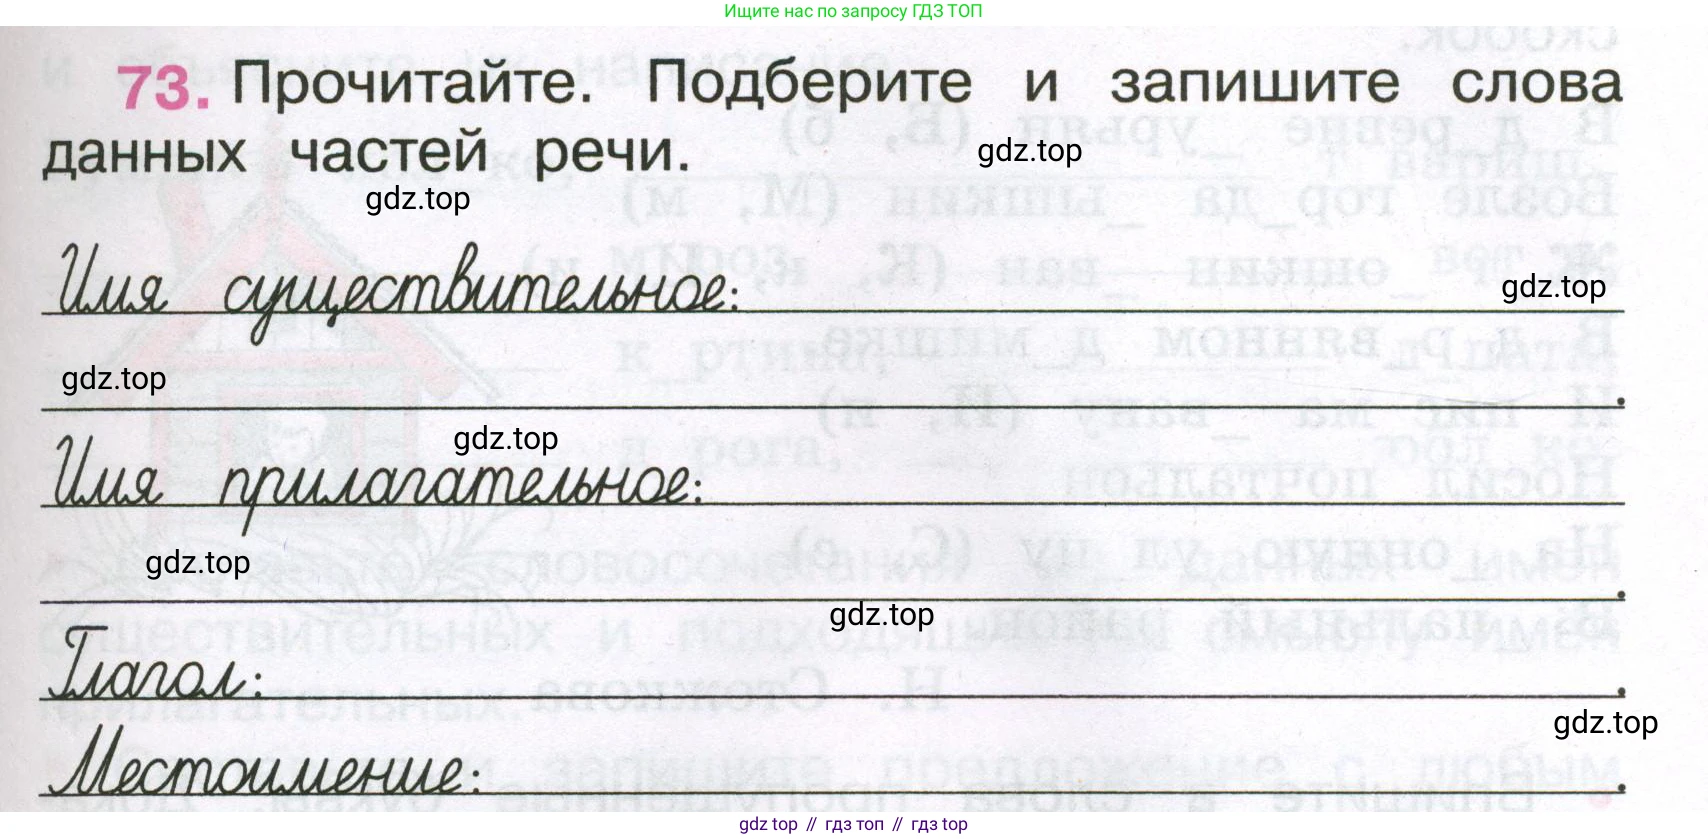 Ищите нас по запросу ГДЗ ТОП
73. Прочитайте. Подберите и запишите слова
данных частей речи.
gdz.top
gdz.top
Имя существительное:
gdz.top
gdz.top
.
gdz.top
Имя прилагательное:
gdz.top
.
gdz.top
Глагол: .
gdz.top
Местоимение: .
gdz top // гдз топ // gdz top